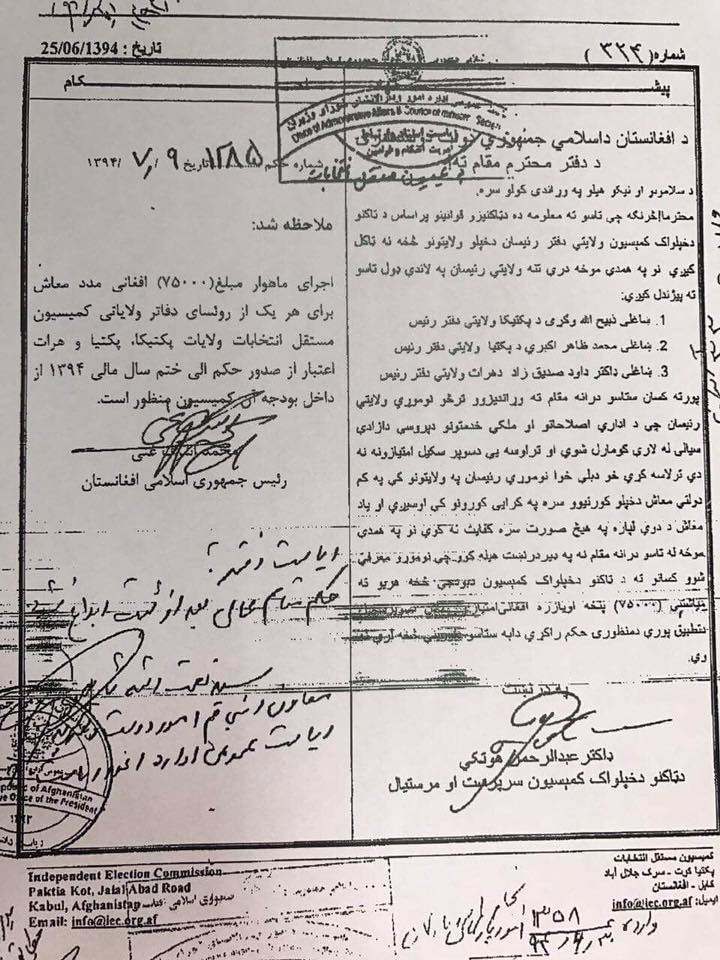 شماره( ۳۲۴ )
تاریخ : 25/06/1394
پیشــــکام
د افغانستان داسلامي جمهوري دولت
د دفتر محترم مقام ته!
د سلامونو او نیکو هیلو په وړاندې کولو سره.
محترما!څرنګه چې تاسو ته معلومه ده دټاکنیزو قوانینو پر اساس د ټاکنو
دخپلواک کمیسیون ولایتي دفتر رئیسان دخپلو ولایتونو څخه نه ټاکل
کیږي نو په همدي موخه دري تنه ولایتي رئیسان په لاندې ډول تاسو
ته پیژندل کیږي:
1. ښاغلی ذبیح الله وګړی د پکتیکا ولایتي دفتر رئیس
2. ښاغلی محمد ظاهر اکبري د پکتیا ولایتي دفتر رئیس
3. ښاغلی ډاکتر داود صدیق زاد دهرات ولایتي دفتر رئیس
پورته کسان ستاسو درانه مقام ته وړاندیزوو ترڅو نوموړي ولایتي
رئیسان چې د اداري اصلاحاتو او ملکي خدمتونو دپروسې دازادې
سیالۍ له لارې ګومارل شوي او تراوسه یې دسوپر سکیل امتیازونه نه
دي ترلاسه کړي خو دبلې خوا نوموړي رئیسان په ولایتونو کې په کم
دولتي معاش دخپلو کورنیوو سره په کرایي کورونو کې اوسیږي او یاد
معاش د دوي لپاره په هیڅ صورت سره کفایت نه کوي نو په همدي
موخه له تاسو درانه مقام نه په ډیردرنښت هیله کوو چې نوموړو معرفي
شوو کسانو ته د ټاکنو دخپلواک کمیسیون دبودجې څخه هریو ته
(۷۵۰۰۰) پنځه اویازره افغانۍ امتیازي
دتطبیق پورې دمنظورۍ حکم راکړي دابه ستاسو څخه لري
وي.
په درنښت
ډاکتر عبدالرحمن هوتکي
دټاکنو دخپلواک کمیسیون سرپرست او مرستیال
Office of Administrative Affairs & Council of minister
کمیسیون مستقل انتخابات
شماره حکم ۱۲۸۵ تاریخ ۹ / ۷ /۱۳۹۴
ملاحظه شد:
اجرای ماهوار مبلغ(۷۵۰۰۰) افغانی مدد معاش
برای هر یک از روئسای دفاتر ولایاتی کمیسیون
مستقل انتخابات ولایات پکتیکا، پکتیا و هرات
اعتبار از صدور حکم الی ختم سال مالی ۱۳۹۴ از
داخل بودجه آن کمیسیون منظور است.
محمد اشرف غنی
رئیس جمهوری اسلامی افغانستان
ریاست دفتر:
حکم مقام عالی بعد از ثبت ابلاغ شود
ریاست عمومی اداره امور
Republic of Afghanistan
Office of the President
Independent Election Commission
Paktia Kot, Jalal Abad Road
Kabul, Afghanistan
Email: info@iec.org.af
کمیسیون مستقل انتخابات
پکتیا کوت - سرک جلال آباد
کابل - افغانستان
ایمیل: info@iec.org.af
وارده ۱۳۵۸